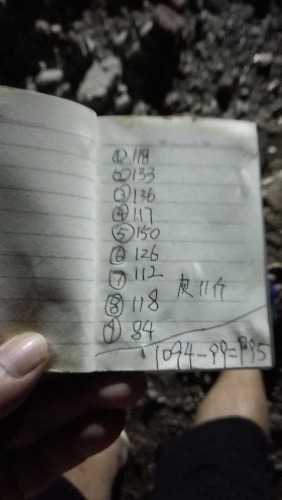 ①118
②133
③136
④117
⑤150
⑥126
⑦112
皮11斤
⑧118
⑨84
1094-99=995